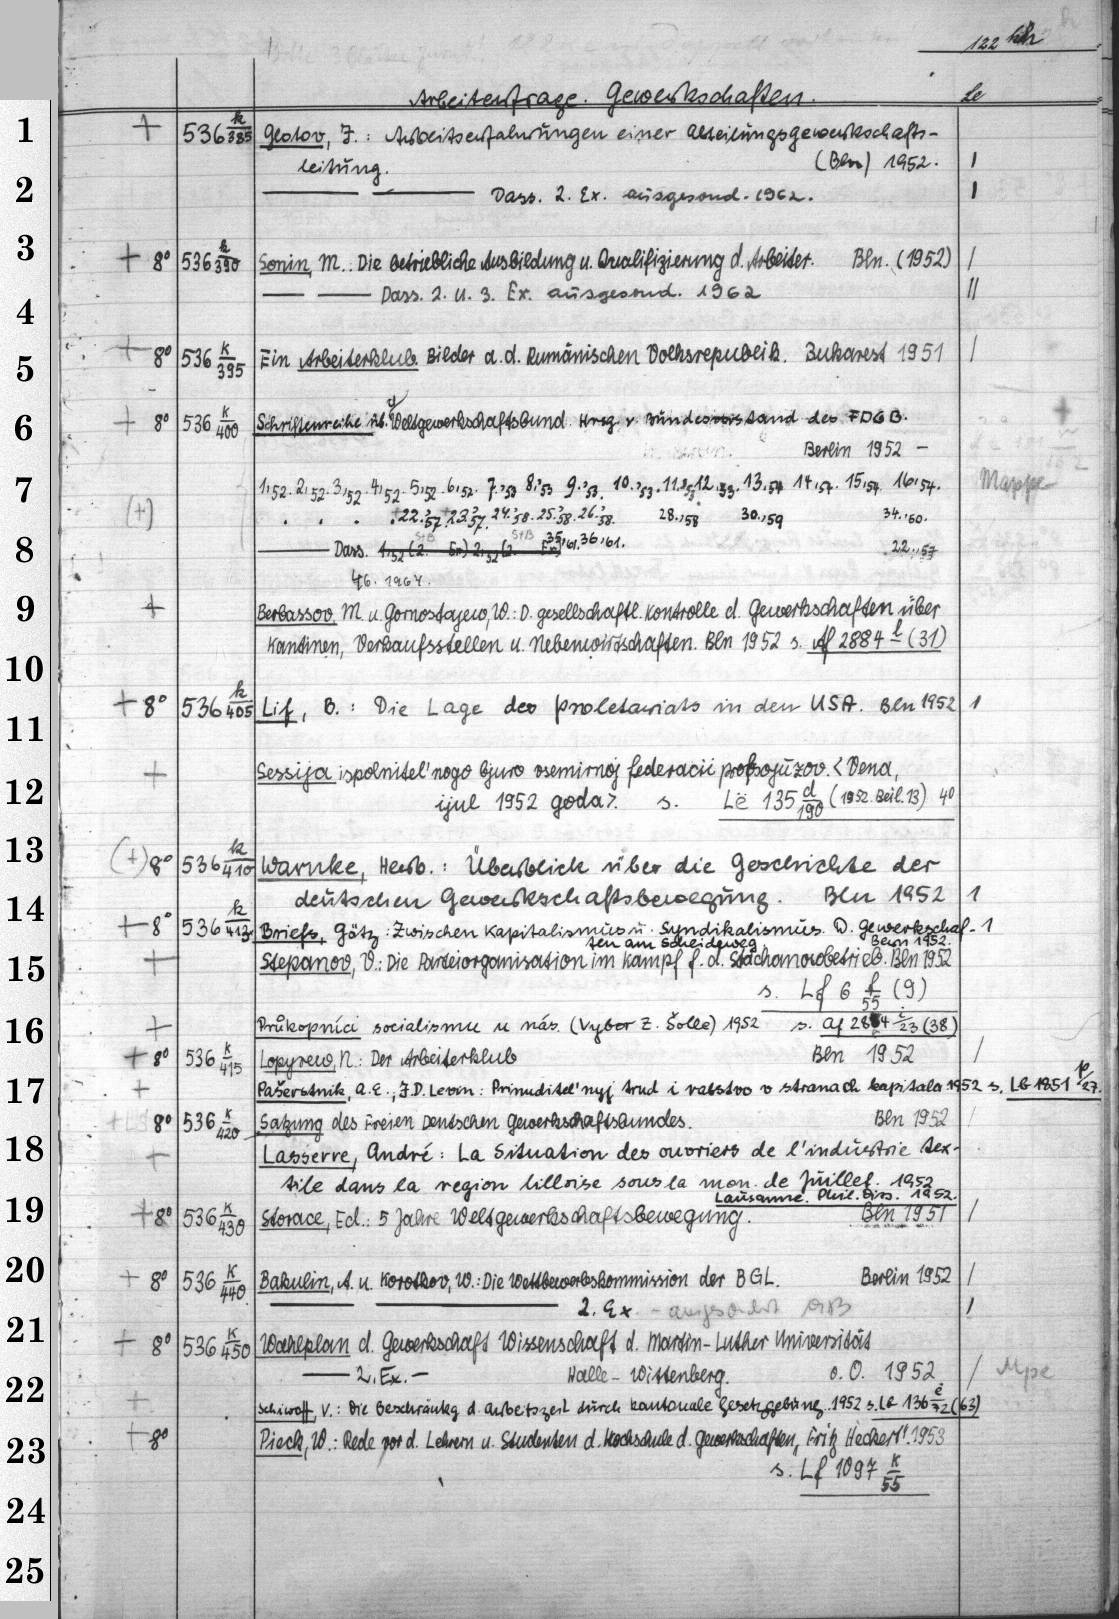 122
Arbeiterfrage. Gewerkschaften. Le
1 + 536 k/385 Glotov, J.: Arbeitserfahrungen einer Abteilungsgewerkschafts-
leitung. (Bln) 1952. 1
2 Dass. 2. Ex. ausgesond. 1962. 1
3 + 8° 536 k/390 Sonin, M.: Die betriebliche Ausbildung u. Qualifizierung d. Arbeiter. Bln. (1952) /
4 Dass. 2. u. 3. Ex. ausgesond. 1962 //
5 + 8° 536 K/395 Ein Arbeiterklub. Bilder a. d. Rumänischen Volksrepublik. Bukarest 1951 /
6 + 8° 536 K/400 Schriftenreihe üb. d. Weltgewerkschaftsbund. Hrsg. v. Bundesvorstand des FDGB.
Berlin 1952 –
7 1,52. 2,52. 3,52. 4,52. 5,52. 6,52. 7,'53 8,'53 9,'53. 10,'53. 11,'53 12,'53. 13,54 14,54. 15,54 16,54. Mappe
(+) 22,'57 23,'57. 24,'58. 25,'58. 26,'58. 28,58 30,59 34,'60.
35,'61. 36,'61.
8 Dass. 1,52 (2. Ex) 2,52 (2. Ex) 22,57
46. 1964.
9 + Berbassov, M. u. Gornostajew, W.: D. gesellschaftl. Kontrolle d. Gewerkschaften über
Kantinen, Verkaufsstellen u. Nebenwirtschaften. Bln 1952 s. Af 2884 l (31)
10
+ 8° 536 k/405 Lif, B.: Die Lage des Proletariats in den USA. Bln 1952 1
11
+ Sessija ispolnitel'nogo bjuro vsemirnoj federacii profsojuzov. < Vena,
12 ijul 1952 goda >. s. Lë 135 d/190 (1952. Beil. 13) 4°
13 (+) 8° 536 k/410 Warnke, Herb.: Überblick über die Geschichte der
14 deutschen Gewerkschaftsbewegung. Bln 1952 1
+ 8° 536 k/413 Briefs, Götz: Zwischen Kapitalismus u. Syndikalismus. D. Gewerkschaf- 1
ten am Scheideweg. Bern 1952.
15 + Stepanov, V.: Die Parteiorganisation im Kampf f. d. Stachanowbetrieb. Bln 1952
s. Lf 6 f/55 (9)
16 + Průkopníci socialismu u nás. (Vybor Z. Šolle) 1952 s. Af 2884 i/23 (38)
+ 8° 536 K/415 Lopyrew, N.: Der Arbeiterklub Bln 1952 /
17 + Pašerstnik, A. E., J. D. Levin: Prinuditel'nyj trud i rabstvo v stranach kapitala 1952 s. LG 1851 k/27.
8° 536 K/420 Satzung des Freien Deutschen Gewerkschaftsbundes. Bln 1952 /
18 + Lasserre, André: La Situation des ouvriers de l'industrie tex-
tile dans la region lilloise sous la mon. de Juillet. 1952
Lausanne. Phil. Diss. 1952.
19 + 8° 536 K/430 Storace, Ed.: 5 Jahre Weltgewerkschaftsbewegung. Bln 1951 /
20 + 8° 536 K/440 Bakulin, A. u. Korotkov, W.: Die Wettbewerbskommission der BGL. Berlin 1952 /
2. Ex. 1
21 + 8° 536 K/450 Wahlplan d. Gewerkschaft Wissenschaft d. Martin-Luther Universität
2. Ex. – Halle-Wittenberg. o. O. 1952 / Mpe
22 + Schiwoff, V.: Die Beschränkg d. Arbeitszeit durch kantonale Gesetzgebung. 1952 s. LG 136 e/72 (63)
23 + 8° Pieck, W.: Rede vor d. Lehrern u. Studenten d. Hochschule d. Gewerkschaften „Fritz Heckert". 1953
s. Lf 1097 K/55
24
25